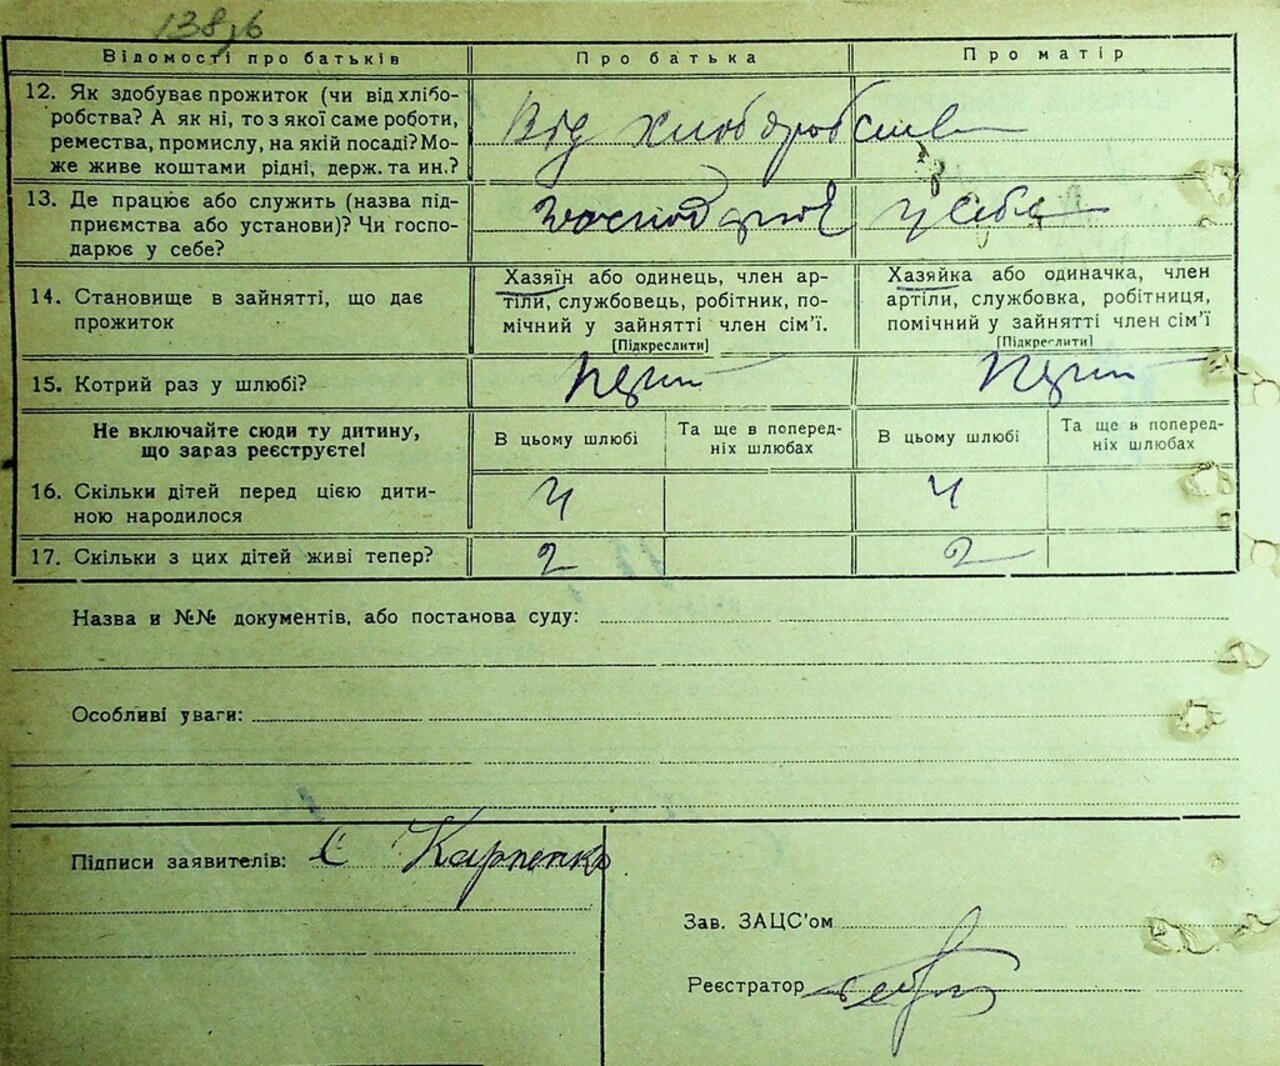 138,6
Відомості про батьків Про батька Про матір
12. Як здобуває прожиток (чи від хлібо-
робства? А як ні, то з якої саме роботи,
ремества, промислу, на якій посаді? Мо-
же живе коштами рідні, держ. та ин.?
Від хлиборобства
13. Де працює або служить (назва під-
приємства або установи)? Чи госпо-
дарює у себе?
господарює у себе
14. Становище в зайнятті, що дає
прожиток
Хазяїн або одинець, член ар-
тіли, службовець, робітник, по-
мічний у зайнятті член сім'ї.
[Підкреслити]
Хазяйка або одиначка, член
артіли, службовка, робітниця,
помічний у зайнятті член сім'ї
[Підкреслити]
15. Котрий раз у шлюбі?
Не включайте сюди ту дитину,
що зараз реєструєте!
В цьому шлюбі Та ще в поперед-
ніх шлюбах В цьому шлюбі Та ще в поперед-
ніх шлюбах
16. Скільки дітей перед цією дити-
ною народилося
4 4
17. Скільки з цих дітей живі тепер? 2 2
Назва и №№ документів, або постанова суду:
Особливі уваги:
Підписи заявителів: Є Карпенко
Зав. ЗАЦС'ом
Реєстратор